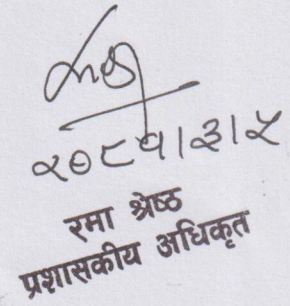 २०८१।३।५
रमा श्रेष्ठ
प्रशासकीय अधिकृत